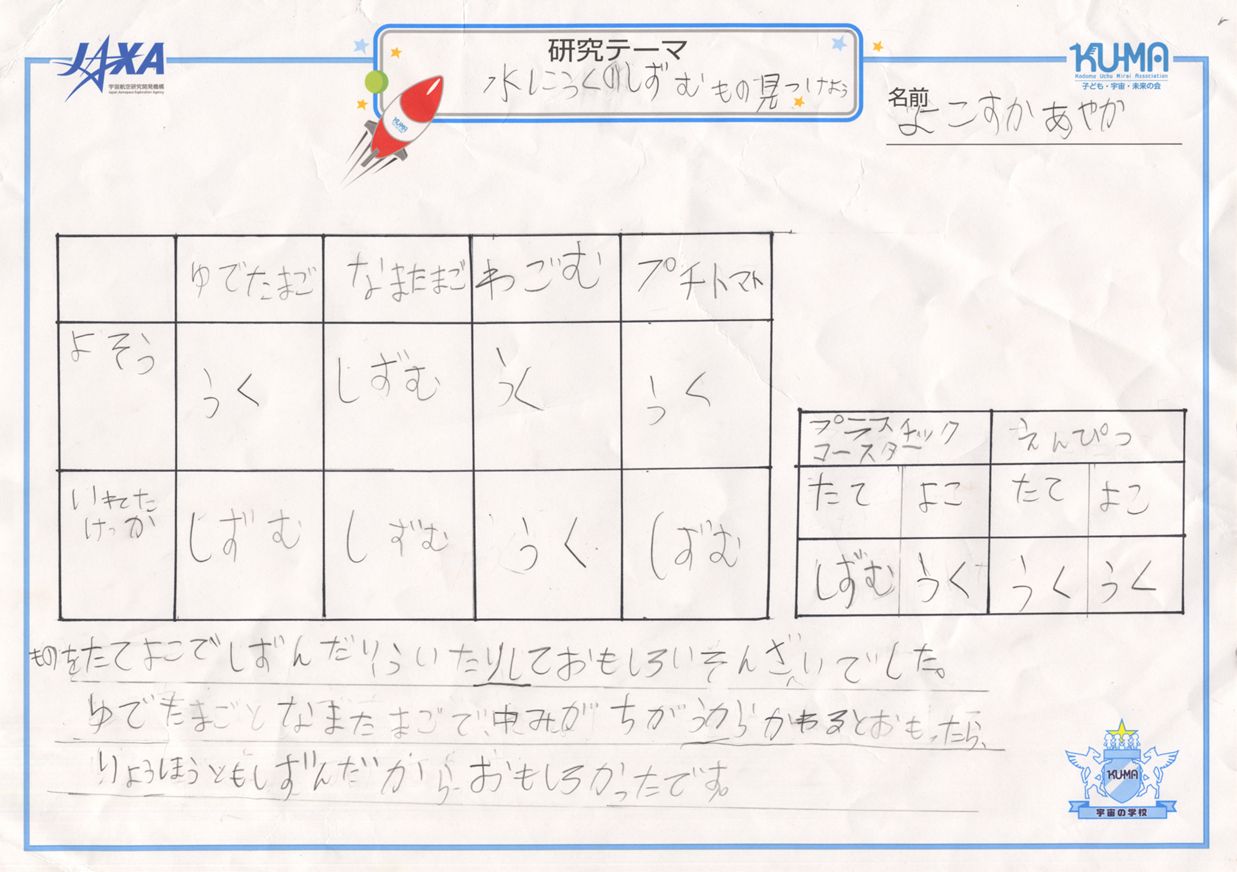 JAXA
宇宙航空研究開発機構
Japan Aerospace Exploration Agency
研究テーマ
水にうくしずむもの見つけよう
KUMA
KU-MA
Kodomo Uchu Mirai Association
子ども・宇宙・未来の会
名前
よこすかあやか
ゆでたまご なまたまご わごむ プチトマト
よそう うく しずむ うく うく
いれてた
けっか しずむ しずむ うく しずむ
プラスチック
コースター えんぴつ
たて よこ たて よこ
しずむ うく うく うく
ものをたてよこでしずんだりういたりしておもしろいそんざいでした。
ゆでたまごとなまたまごで、中みがちがうからかわるとおもったら、
りょうほうともしずんだからおもしろかったです。
KU-MA
宇宙の学校